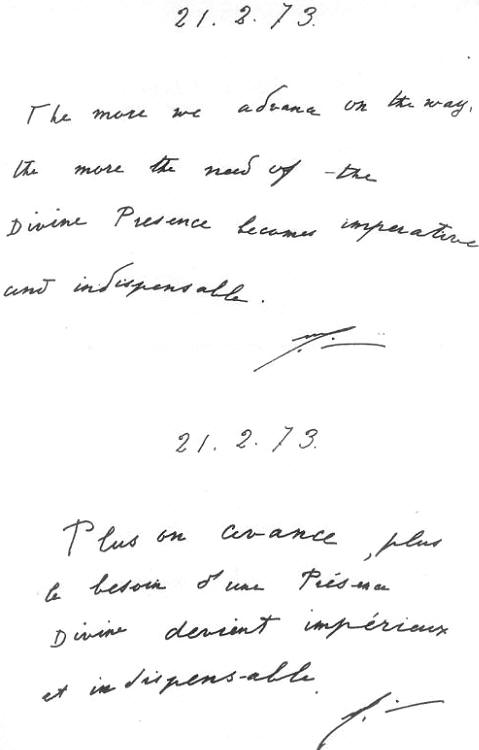 21.2.73.
The more we advance on the way,
the more the need of the
Divine Presence becomes imperative
and indispensable.
21.2.73.
Plus on avance, plus
le besoin d'une Présence
Divine devient impérieux
et indispensable.